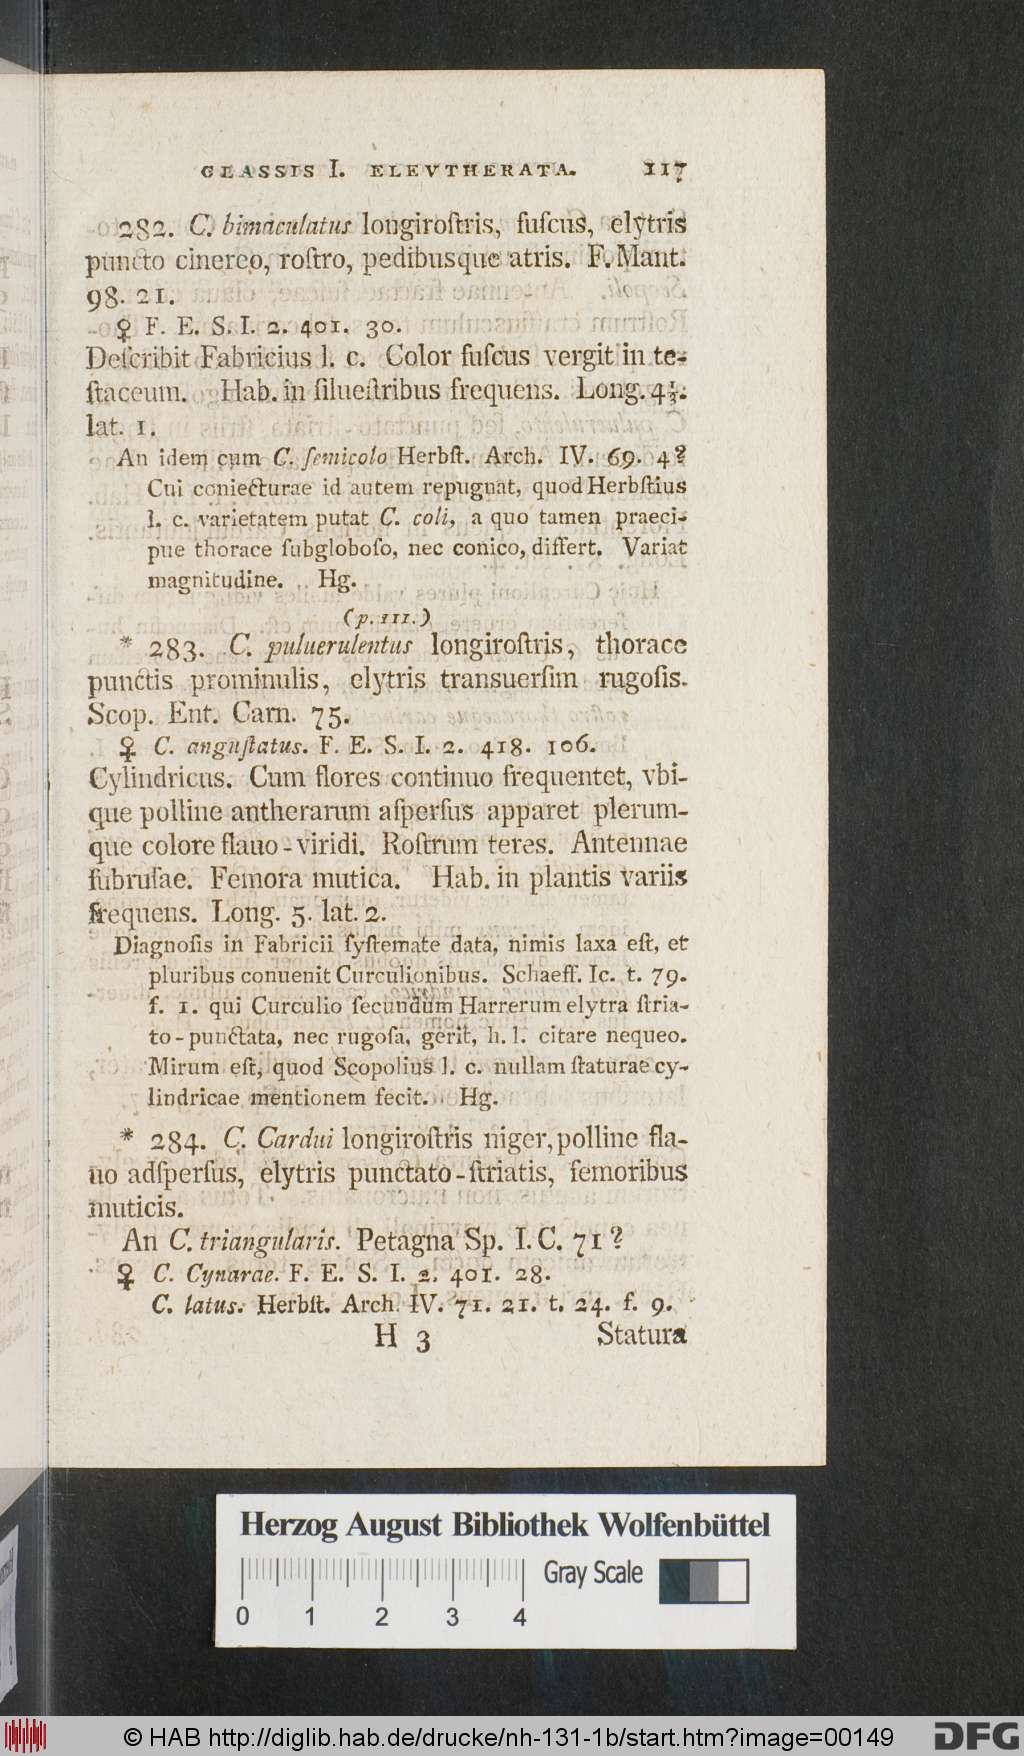 CLASSIS I. ELEVTHERATA. 117
282. C. bimaculatus longiroſtris, fuſcus, elytris
puncto cinereo, roſtro, pedibusque atris. F. Mant.
98. 21.
♀ F. E. S. I. 2. 401. 30.
Deſcribit Fabricius l. c. Color fuſcus vergit in te-
ſtaceum. Hab. in ſilueſtribus frequens. Long. 4⅓.
lat. 1.
An idem cum C. ſemicolo Herbſt. Arch. IV. 69. 4?
Cui coniecturae id autem repugnat, quod Herbſtius
l. c. varietatem putat C. coli, a quo tamen praeci-
pue thorace ſubgloboſo, nec conico, differt. Variat
magnitudine. Hg.
(p. III.)
* 283. C. puluerulentus longiroſtris, thorace
punctis prominulis, elytris transuerſim rugoſis.
Scop. Ent. Carn. 75.
♀ C. anguſtatus. F. E. S. I. 2. 418. 106.
Cylindricus. Cum flores continuo frequentet, vbi-
que polline antherarum aſperſus apparet plerum-
que colore flauo-viridi. Roſtrum teres. Antennae
ſubrufae. Femora mutica. Hab. in plantis variis
frequens. Long. 5. lat. 2.
Diagnoſis in Fabricii ſyſtemate data, nimis laxa eſt, et
pluribus conuenit Curculionibus. Schaeff. Ic. t. 79.
f. 1. qui Curculio ſecundum Harrerum elytra ſtria-
to-punctata, nec rugoſa, gerit, h. l. citare nequeo.
Mirum eſt, quod Scopolius l. c. nullam ſtaturae cy-
lindricae mentionem fecit. Hg.
* 284. C. Cardui longiroſtris niger, polline fla-
uo adſperſus, elytris punctato-ſtriatis, femoribus
muticis.
An C. triangularis. Petagna Sp. I. C. 71?
♀ C. Cynarae. F. E. S. I. 2. 401. 28.
C. latus. Herbſt. Arch. IV. 71. 21. t. 24. f. 9.
H 3 Statura
Herzog August Bibliothek Wolfenbüttel
Gray Scale
0 1 2 3 4
© HAB http://diglib.hab.de/drucke/nh-131-1b/start.htm?image=00149
DFG